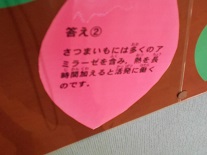 答え②
さつまいもには多くのア
ミラーゼを含み、熱を長
時間加えると活発に働く
のです。